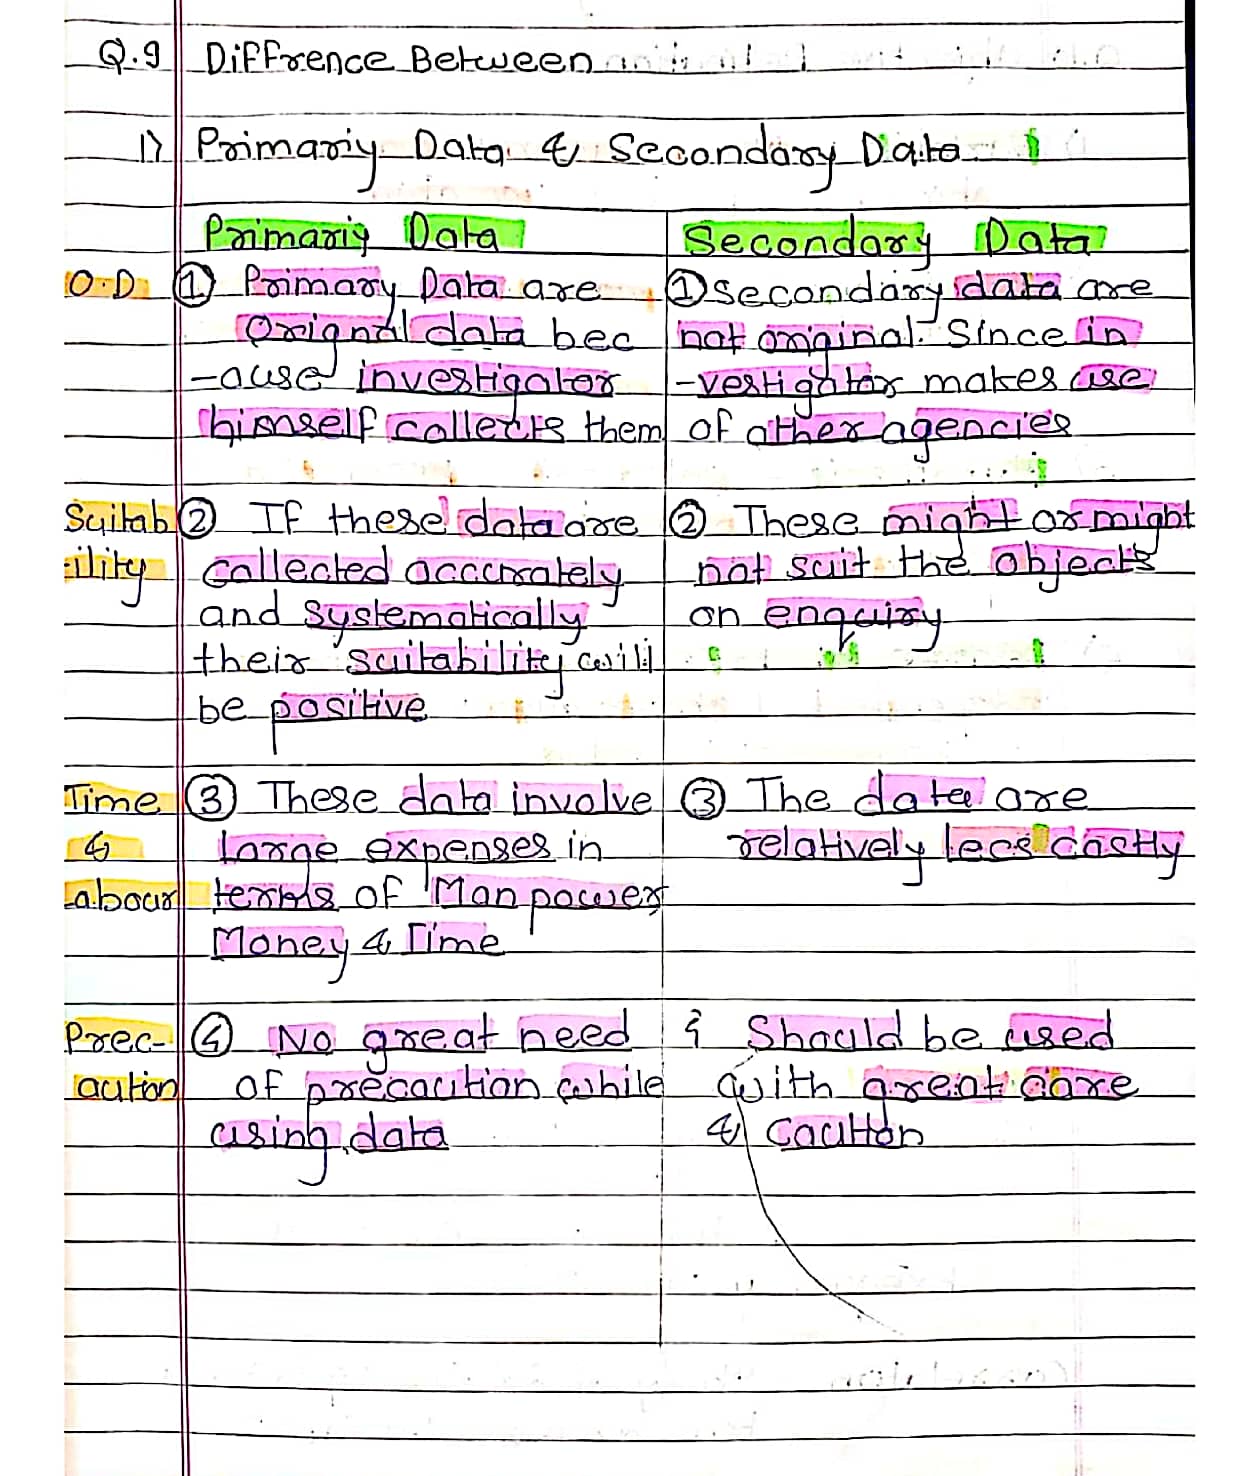 Q.9 Diffrence Between
1) Primariy Data & Secondary Data
Primariy Data Secondary Data
O.D ① Primary Data are ① secondary data are
Orignal data bec not original. Since in
-ause investigator -vestigator makes use
himself collects them of other agencies
Suitab ② If these data are ② These might or might
ility collected acccurately not suit the objects
and systematically on enquiry
their suitability will
be positive
Time ③ These data involve ③ The data are
& large expenses in relatively less costly
Labour terms of Man power
Money & Time
Prec- ④ No great need Should be used
aution of precaution while with great care
using data & Caution